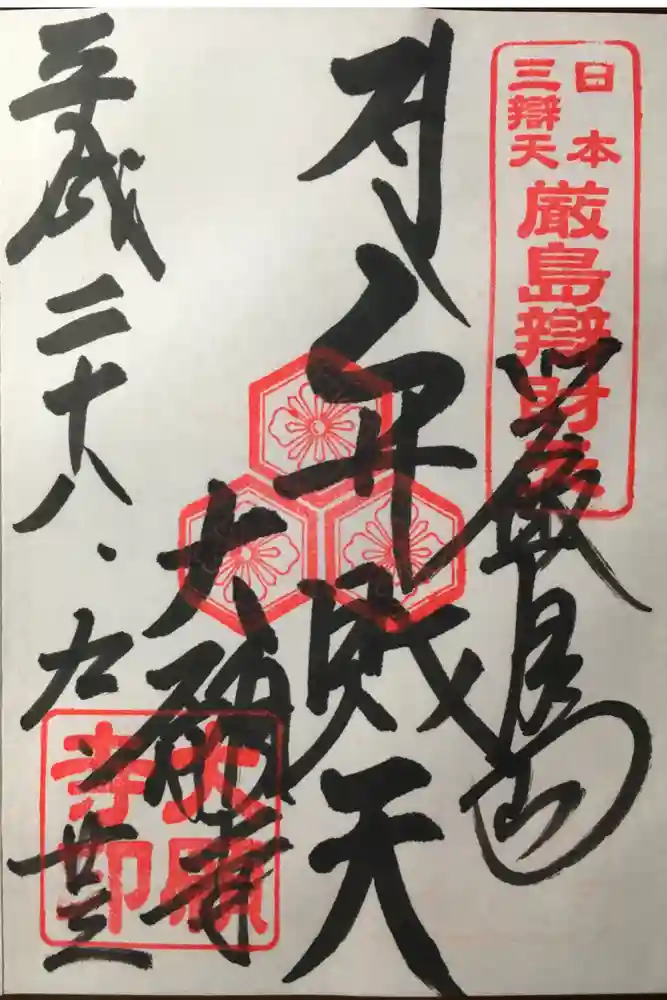 日本
三辯天
厳島辯財天
厳島山
弁財天
大願寺
平成二十八・九、廿三
大願
寺印